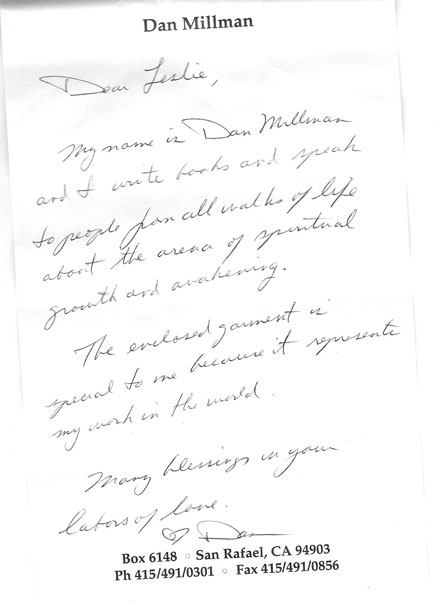 Dan Millman
Dear Leslie,
My name is Dan Millman
and I write books and speak
to people from all walks of life
about the arena of spiritual
growth and awakening.
The enclosed garment is
special to me because it represents
my work in the world.
Many blessings in your
labors of love.
♡ Dan
Box 6148 ◦ San Rafael, CA 94903
Ph 415/491/0301 ◦ Fax 415/491/0856